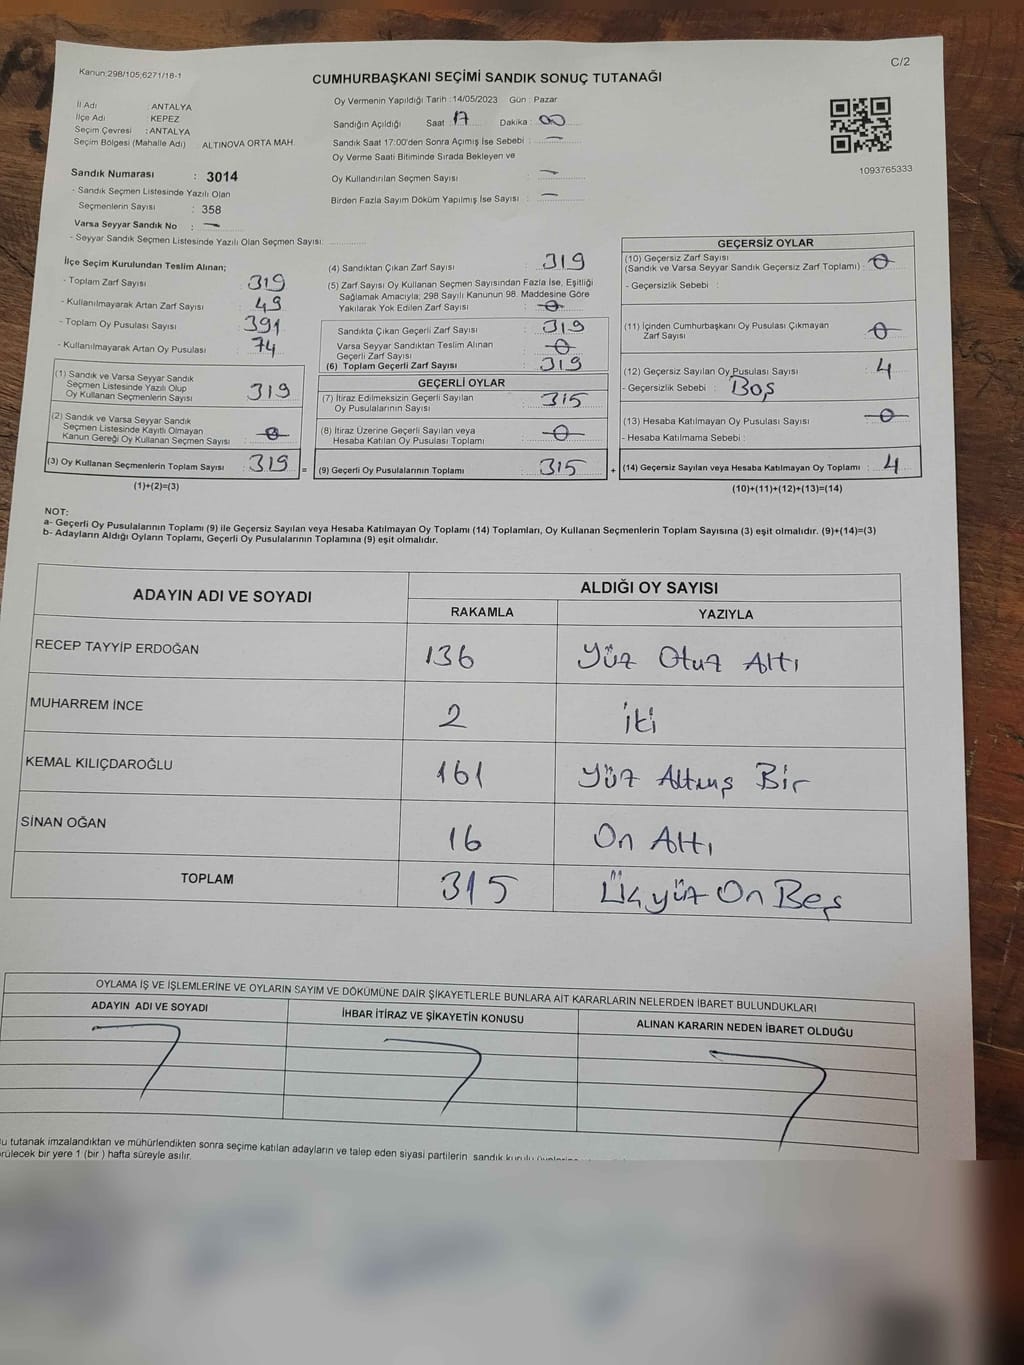 Kanun:298/105;6271/18-1
C/2
CUMHURBAŞKANI SEÇİMİ SANDIK SONUÇ TUTANAĞI
İl Adı : ANTALYA
İlçe Adı : KEPEZ
Seçim Çevresi : ANTALYA
Seçim Bölgesi (Mahalle Adı) : ALTINOVA ORTA MAH.
Oy Vermenin Yapıldığı Tarih : 14/05/2023 Gün : Pazar
Sandığın Açıldığı Saat 17 Dakika : 00
Sandık Saat 17:00'den Sonra Açımış İse Sebebi : —
Oy Verme Saati Bitiminde Sırada Bekleyen ve
Oy Kullandırılan Seçmen Sayısı : —
Birden Fazla Sayım Döküm Yapılmış İse Sayısı : —
1093765333
Sandık Numarası : 3014
- Sandık Seçmen Listesinde Yazılı Olan
Seçmenlerin Sayısı : 358
Varsa Seyyar Sandık No : —
- Seyyar Sandık Seçmen Listesinde Yazılı Olan Seçmen Sayısı:
İlçe Seçim Kurulundan Teslim Alınan;
- Toplam Zarf Sayısı : 319
- Kullanılmayarak Artan Zarf Sayısı : 49
- Toplam Oy Pusulası Sayısı : 391
- Kullanılmayarak Artan Oy Pusulası : 74
(1) Sandık ve Varsa Seyyar Sandık
Seçmen Listesinde Yazılı Olup
Oy Kullanan Seçmenlerin Sayısı : 319
(2) Sandık ve Varsa Seyyar Sandık
Seçmen Listesinde Kayıtlı Olmayan
Kanun Gereği Oy Kullanan Seçmen Sayısı : 0
(3) Oy Kullanan Seçmenlerin Toplam Sayısı : 319 =
(1)+(2)=(3)
(4) Sandıktan Çıkan Zarf Sayısı : 319
(5) Zarf Sayısı Oy Kullanan Seçmen Sayısından Fazla İse, Eşitliği
Sağlamak Amacıyla; 298 Sayılı Kanunun 98. Maddesine Göre
Yakılarak Yok Edilen Zarf Sayısı : 0
Sandıkta Çıkan Geçerli Zarf Sayısı : 319
Varsa Seyyar Sandıktan Teslim Alınan
Geçerli Zarf Sayısı : 0
(6) Toplam Geçerli Zarf Sayısı : 319
GEÇERLİ OYLAR
(7) İtiraz Edilmeksizin Geçerli Sayılan
Oy Pusulalarının Sayısı : 315
(8) İtiraz Üzerine Geçerli Sayılan veya
Hesaba Katılan Oy Pusulası Toplamı : 0
(9) Geçerli Oy Pusulalarının Toplamı : 315 +
GEÇERSİZ OYLAR
(10) Geçersiz Zarf Sayısı
(Sandık ve Varsa Seyyar Sandık Geçersiz Zarf Toplamı) : 0
- Geçersizlik Sebebi :
(11) İçinden Cumhurbaşkanı Oy Pusulası Çıkmayan
Zarf Sayısı : 0
(12) Geçersiz Sayılan Oy Pusulası Sayısı : 4
- Geçersizlik Sebebi : Boş
(13) Hesaba Katılmayan Oy Pusulası Sayısı : 0
- Hesaba Katılmama Sebebi :
(14) Geçersiz Sayılan veya Hesaba Katılmayan Oy Toplamı : 4
(10)+(11)+(12)+(13)=(14)
NOT:
a- Geçerli Oy Pusulalarının Toplamı (9) ile Geçersiz Sayılan veya Hesaba Katılmayan Oy Toplamı (14) Toplamları, Oy Kullanan Seçmenlerin Toplam Sayısına (3) eşit olmalıdır. (9)+(14)=(3)
b- Adayların Aldığı Oyların Toplamı, Geçerli Oy Pusulalarının Toplamına (9) eşit olmalıdır.
ADAYIN ADI VE SOYADI
ALDIĞI OY SAYISI
RAKAMLA YAZIYLA
RECEP TAYYİP ERDOĞAN 136 Yüz Otuz Altı
MUHARREM İNCE 2 İki
KEMAL KILIÇDAROĞLU 161 Yüz Altmış Bir
SİNAN OĞAN 16 On Altı
TOPLAM 315 Üçyüz On Beş
OYLAMA İŞ VE İŞLEMLERİNE VE OYLARIN SAYIM VE DÖKÜMÜNE DAİR ŞİKAYETLERLE BUNLARA AİT KARARLARIN NELERDEN İBARET BULUNDUKLARI
ADAYIN ADI VE SOYADI İHBAR İTİRAZ VE ŞİKAYETİN KONUSU ALINAN KARARIN NEDEN İBARET OLDUĞU
u tutanak imzalandıktan ve mühürlendikten sonra seçime katılan adayların ve talep eden siyasi partilerin sandık kurulu
rülecek bir yere 1 (bir ) hafta süreyle asılır.